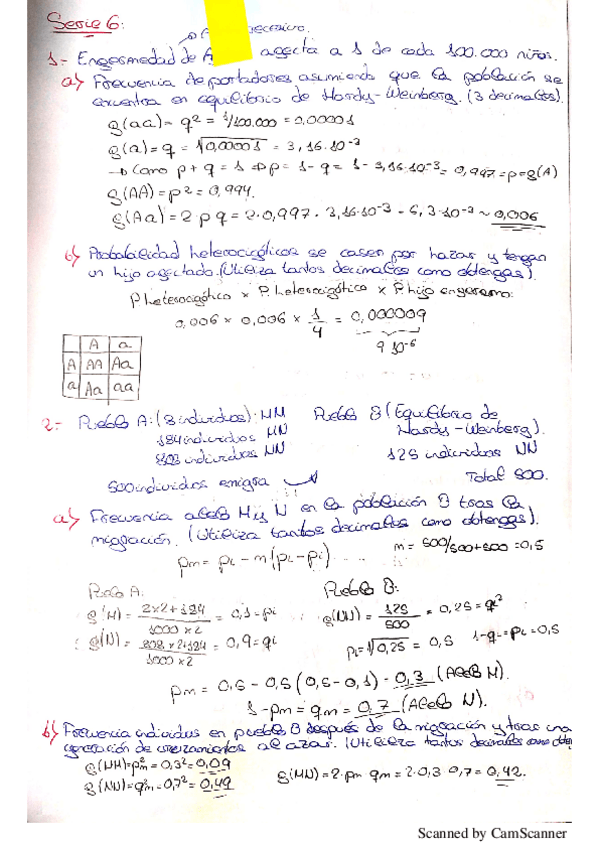 Serie 6:
recesivo.
1.- Enfermedad de A afecta a 1 de cada 100.000 niños.
a) Frecuencia de portadores asumiendo que la población se
encuentra en equilibrio de Hardy-Weinberg. (3 decimales).
f(aa) = q² = 1/100.000 = 0,00001
f(a) = q = √0,00001 = 3,16·10⁻³
→ Como p + q = 1 ⇒ p = 1 - q = 1 - 3,16·10⁻³ = 0,997 = p = f(A)
f(AA) = p² = 0,994.
f(Aa) = 2 p q = 2·0,997 · 3,16·10⁻³ - 6,3·10⁻³ ~ 0,006
b) Probabilidad heterocigóticos se casen por hazar y tengan
un hijo afectado. (Utiliza tantos decimales como obtengas).
P heterocigótico x P. heterocigótico x P. hijo enfermo:
0,006 x 0,006 x 1/4 = 0,000009
9·10⁻⁶
A a
A AA Aa
a Aa aa
2.- Pueblo A: (8 individuos): MM Pueblo B (Equilibrio de
184 individuos MN Hardy-Weinberg).
808 individuos NN 125 individuos NN
500 individuos emigra Total 500.
a) Frecuencia alelo M y N en la población B tras la
migración. (Utiliza tantos decimales como obtengas).
pm = pi - m (pi - pi) m = 500/500+500 = 0,5
Pueblo A: Pueblo B:
f(M) = 2x2+184/1000x2 = 0,1 = pi f(NN) = 125/500 = 0,25 = q²
f(N) = 808x2+184/1000x2 = 0,9 = qi pi = √0,25 = 0,5 1-q = pi = 0,5
pm = 0,5 - 0,5 (0,5 - 0,1) - 0,3 (Alelo M).
1 - pm = qm = 0,7 (Alelo N).
b) Frecuencia individuos en pueblo B después de la migración y tras una
generación de cruzamientos al azar. (Utiliza tantos decimales como
f(MM) = p²m = 0,3² = 0,09 f(MN) = 2·pm qm = 2·0,3·0,7 = 0,42.
f(NN) = q²m - 0,7² = 0,49
Scanned by CamScanner